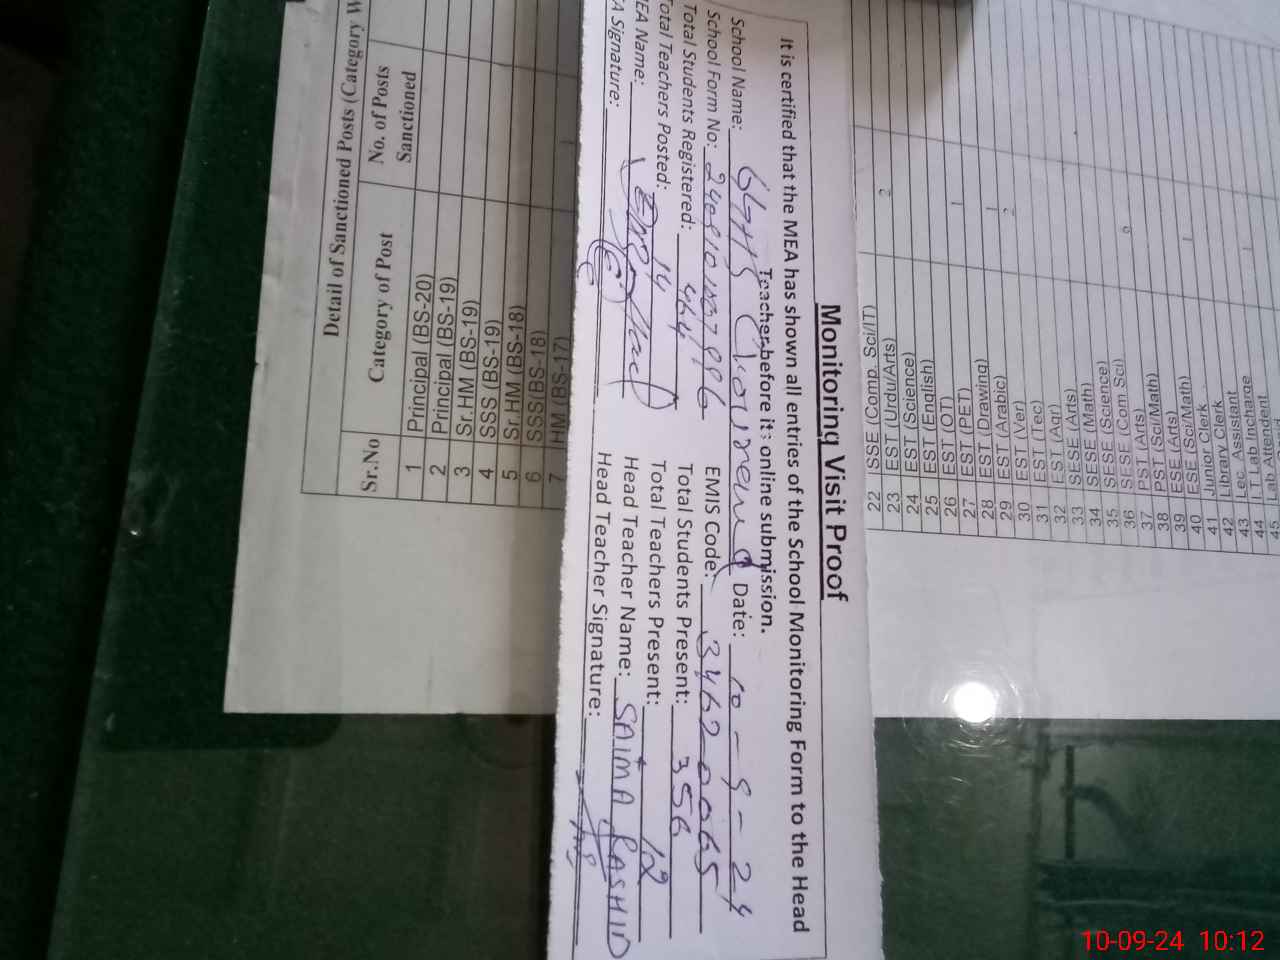 Monitoring Visit Proof
It is certified that the MEA has shown all entries of the School Monitoring Form to the Head
Teacher before its online submission.
School Name: GGHS Date: 10-9-24
School Form No: EMIS Code: 3462-0065
Total Students Registered: 464 Total Students Present: 356
Total Teachers Posted: 14 Total Teachers Present: 12
MEA Name: Head Teacher Name: SAIMA RASHID
A Signature: Head Teacher Signature:
Detail of Sanctioned Posts (Category W
Sr.No Category of Post No. of Posts Sanctioned
1 Principal (BS-20)
2 Principal (BS-19)
3 Sr.HM (BS-19)
4 SSS (BS-19)
5 Sr.HM (BS-18)
6 SSS (BS-18)
7 HM (BS-17) 1
22 SSE (Comp. Sci/IT)
23 EST (Urdu/Arts) 2
24 EST (Science)
25 EST (English)
26 EST (OT)
27 EST (PET) 1
28 EST (Drawing)
29 EST (Arabic) 1
30 EST (Ver) 2
31 EST (Tec
32 EST (Agr)
33 SESE (Arts)
34 SESE (Math)
35 SESE (Science)
36 SESE (Com Sci)
37 PST (Arts)
38 PST (Sci/Math)
39 ESE (Arts)
40 ESE (Sci/Math) 1
41 Junior Clerk
42 Library Clerk
43 Lec. Assistant
44 I.T Lab Incharge 1
45 Lab Attendent
10-09-24 10:12